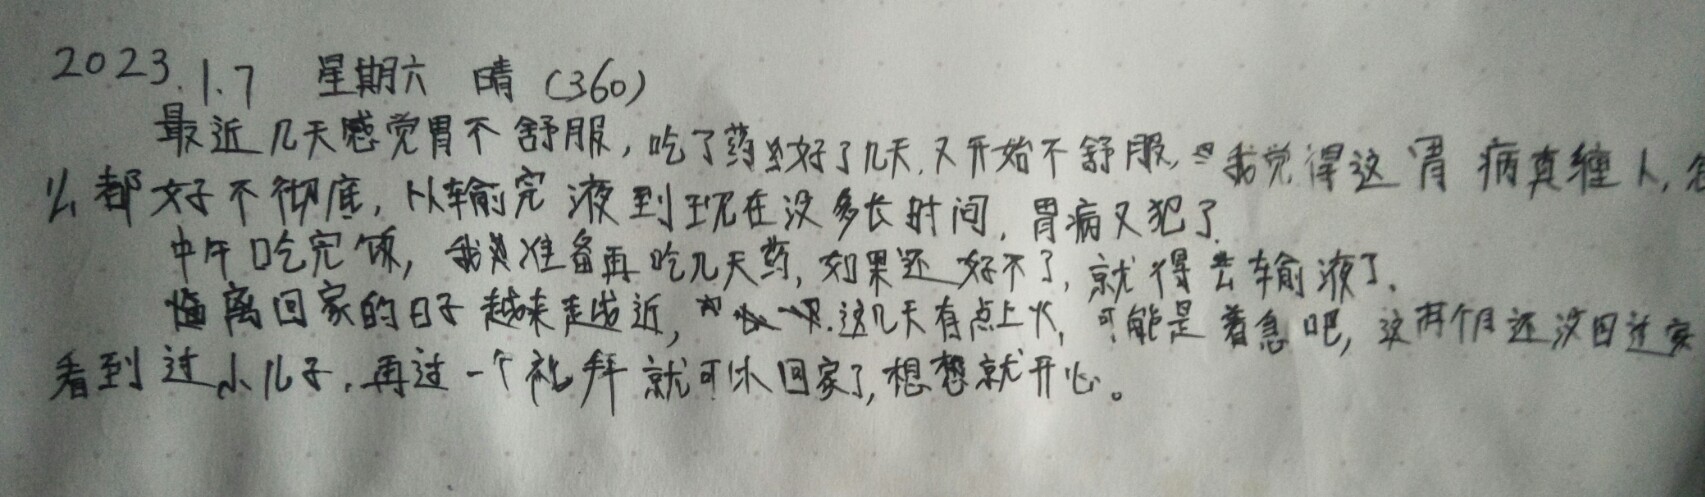 2023.1.7 星期六 晴 (360)
最近几天感觉胃不舒服,吃了药好了几天,又开始不舒服,我觉得这胃病真缠人,怎
么都好不彻底,从输完液到现在没多长时间,胃病又犯了.
中午吃完饭,我准备再吃几天药,如果还好不了,就得去输液了.
离回家的日子越来越近,这几天有点上火,可能是着急吧,这两个月还没回过家
看到过小儿子.再过一个礼拜就可以回家了,想想就开心。